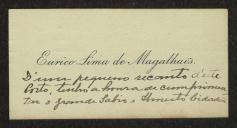 Eurico Lima de Magalhães.
D'um pequeno recanto d'este
Porto, tenho a honra de cumprimen
tar o grande Sabio e Honesto Cidadão